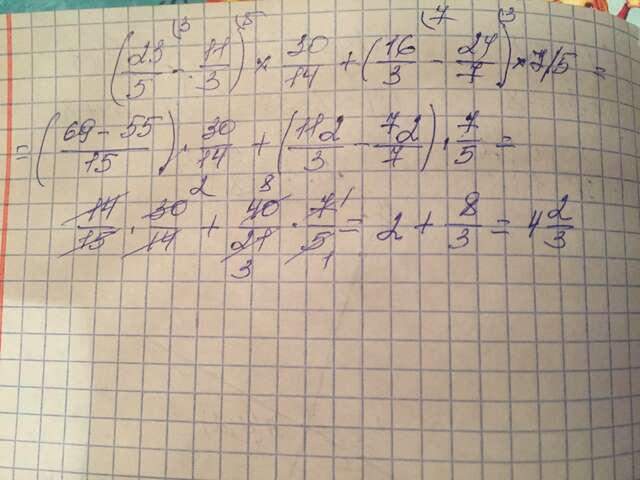 (23/5 - 11/3) × 30/14 + (16/3 - 24/7) × 7/5 =
= (69-55/15) · 30/14 + (112/3 - 72/7) · 7/5 =
14/15 · 30/14 + 40/21 · 7/5 = 2 + 8/3 = 4 2/3